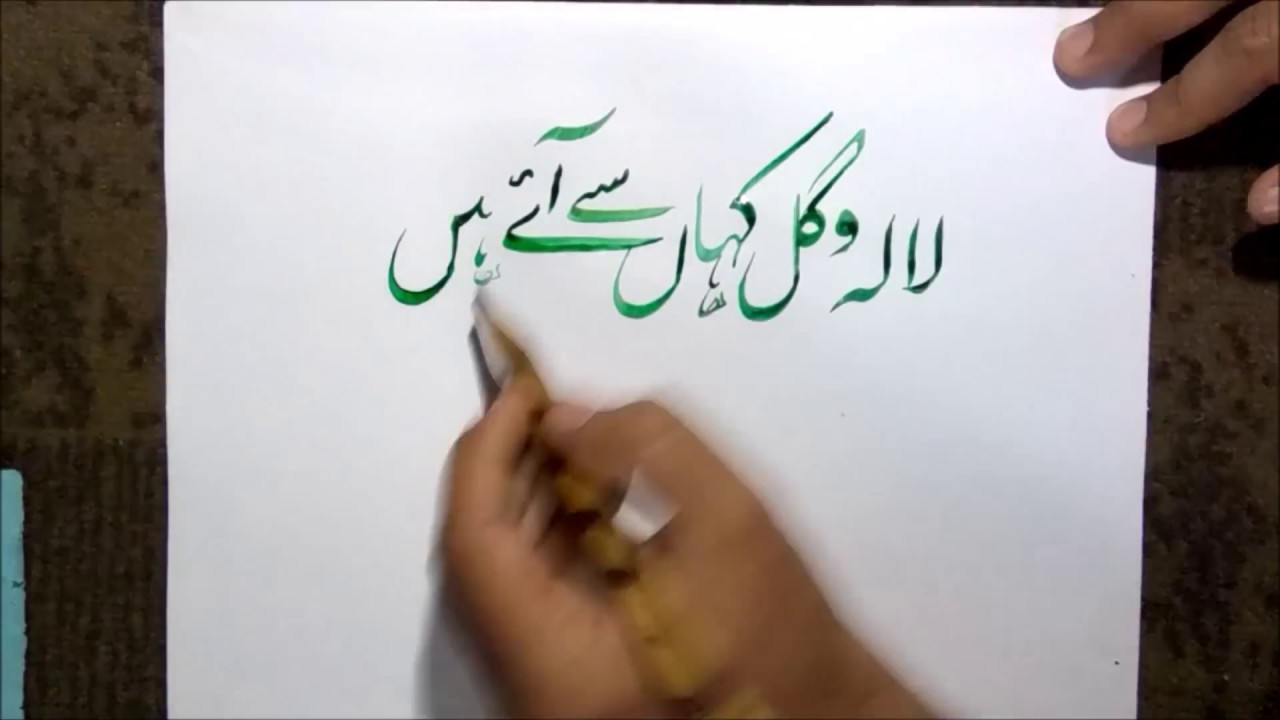 لالہ و گل کہاں سے آئے ہیں